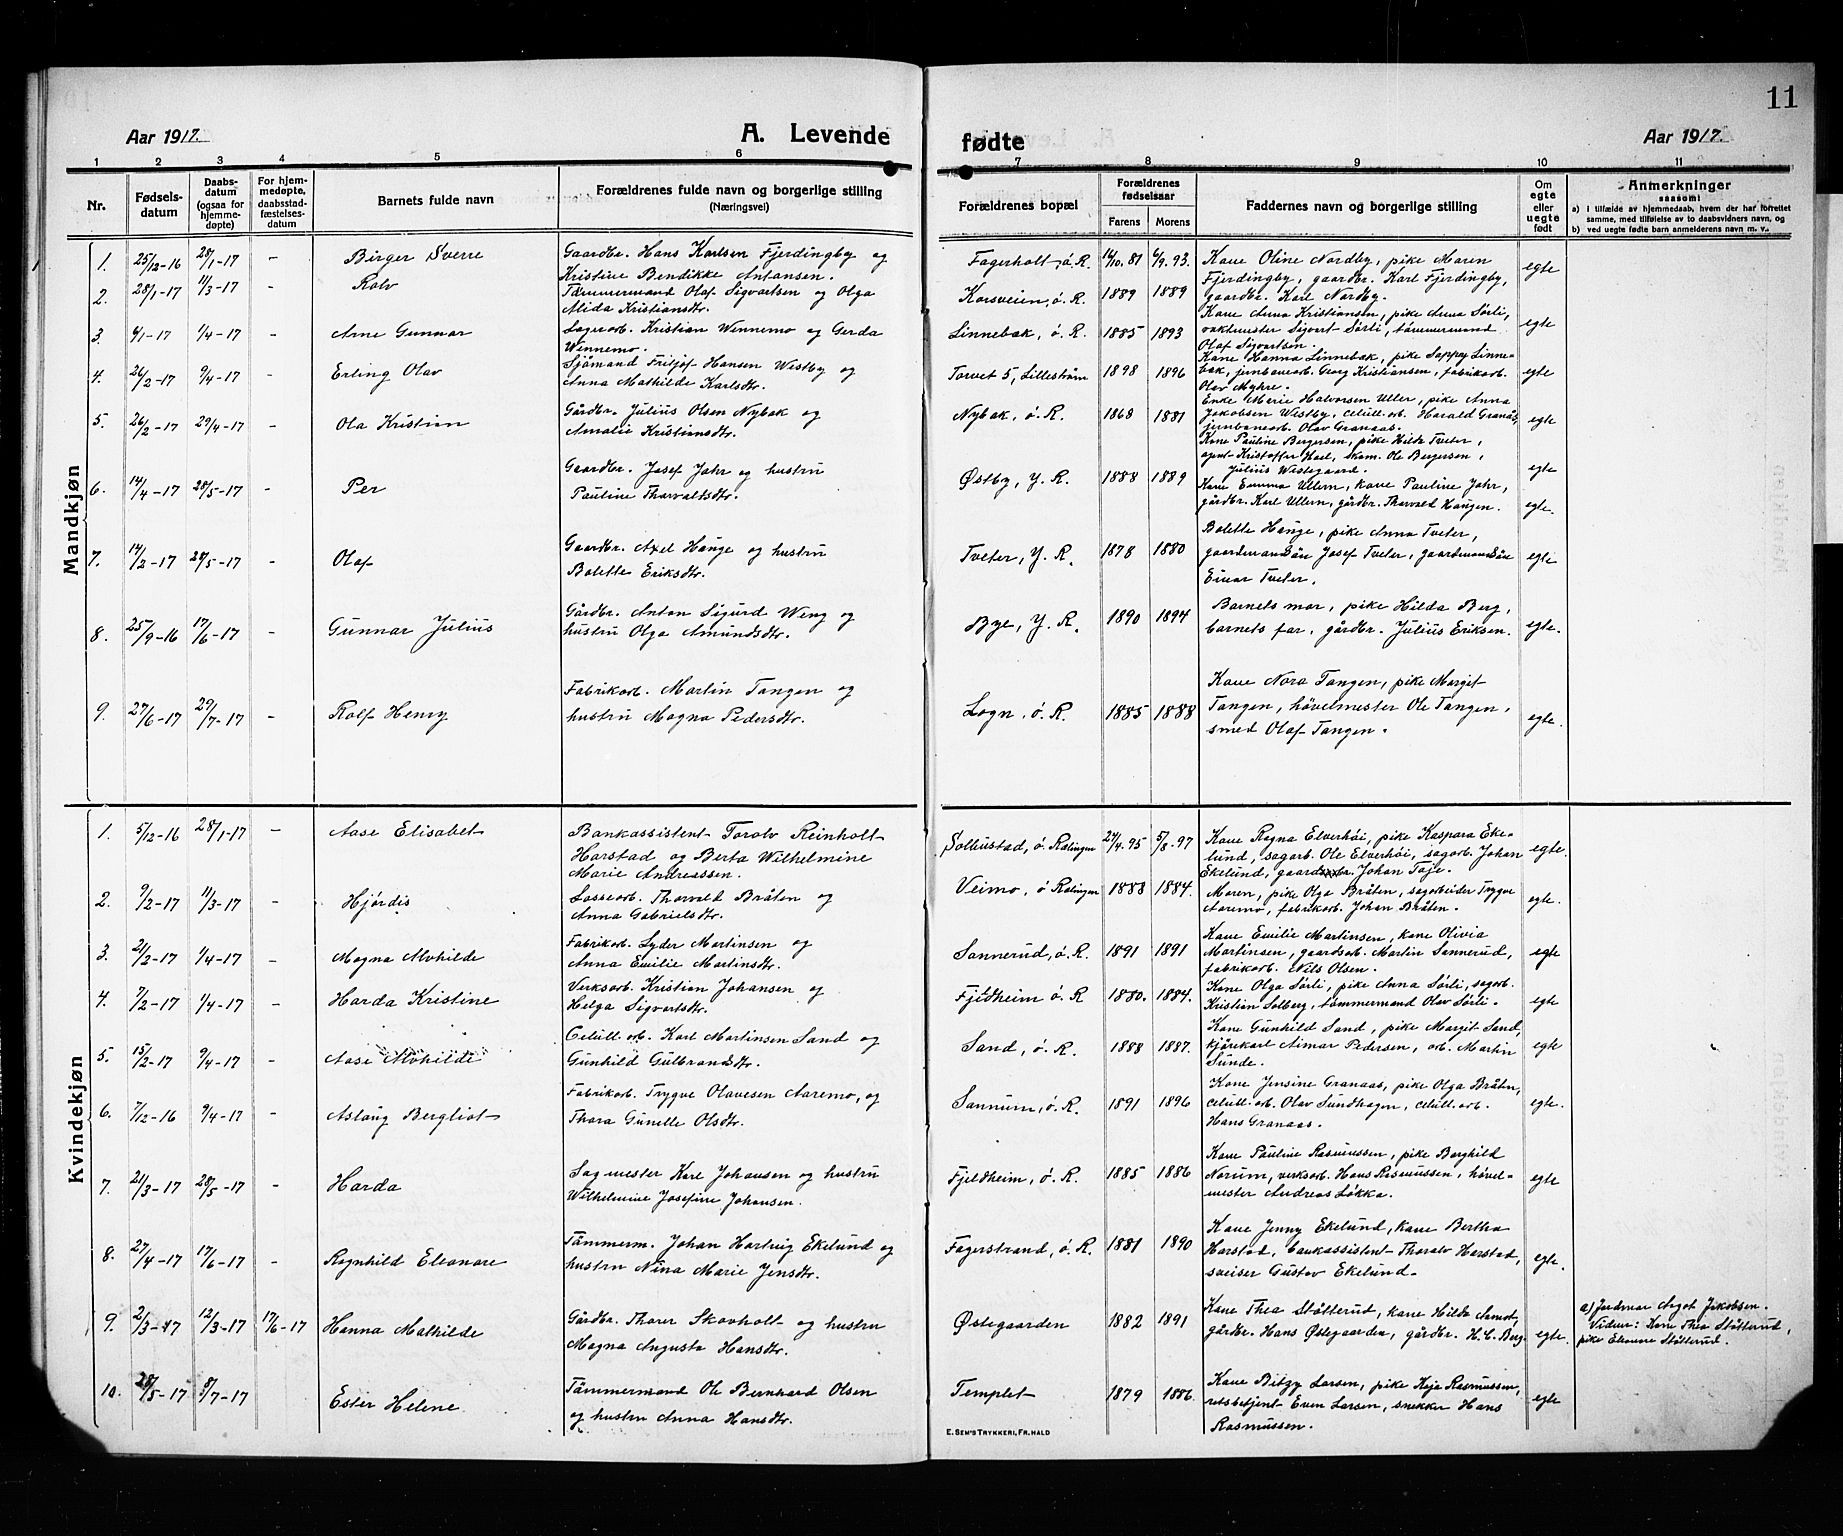 11
Aar 1917.
A. Levende
fødte
Aar 1917.
1 2 3 4 5 6 7 8 9 10 11
Nr.
Fødsels-
datum
Daabs-
datum
(ogsaa for
hjemme-
døpte)
For hjem-
medøpte,
daabsstad-
fæstelses-
datum
Barnets fulde navn
Forældrenes fulde navn og borgerlige stilling
(Næringsvei)
Forældrenes bopæl
Forældrenes
fødselsaar
Farens Morens
Faddernes navn og borgerlige stilling
Om
egte
eller
uegte
født
Anmerkninger
saasom:
a) i tilfælde av hjemmedaab, hvem der har forrettet
samme, med tilføielse av to daabsvidners navn, og
b) ved uegte fødte barn anmelderens navn m. v.
Mandkjøn
1. 25/12-16 28/1-17 - Birger Sverre
Gaardbr. Hans Karlsen Fjerdingby og
Kristine Bendikke Antonsen.
Fagerholt, ö. R. 14/10.87 6/9.93.
Kone Oline Nordby, pike Maren
Fjerdingby, gaardbr. Karl Fjerdingby,
gaardbr. Karl Nordby.
egte
2. 28/1-17 11/3-17 - Rolv
Tømmermand Olaf Sigvartsen og Olga
Alida Kristiansdtr.
Korsveien, ö. R. 1889 1889
Kone Anna Kristiansen, pike Anna Sörli,
vaktmester Sigvart Sörli, tömmermand
Olaf Sigvartsen.
egte
3. 6/1-17 1/4-17 - Arne Gunnar
Sagarb. Kristian Winnemo og Gerda
Winnemo.
Linnebak, ö. R. 1885 1893
Kone Hanna Linnebak, pike Sappey Linne-
bak, jernbanearb. Georg Kristiansen, fabrikarb.
Olav Myhre.
egte
4. 26/2-17 9/4-17 - Erling Olav
Sjömand Fritjof Hansen Westby og
Anna Mathilde Karlsdtr.
Torvet 5, Lilleström 1898 1896
Enke Marie Halvorsen Uller, pike Anna
Jakobsen Westby, celull. arb. Harald Granås,
jernbanearb. Olav Granaas.
egte
5. 26/2-17 29/4-17 - Ola Kristian
Gårdbr. Julius Olsen Nybak og
Amalie Kristiansdtr.
Nybak, ö. R. 1868 1881
Kone Pauline Bergersen, pike Hilda Tveter,
agent Kristoffer Hoel, skom. Ole Bergersen,
Julius Westegaard.
egte
6. 14/4-17 28/5-17 - Per
Gaardbr. Josef Jahr og hustru
Pauline Thorvaldsdtr.
Østby, Y. R. 1888 1889
Kone Emma Ullern, kone Pauline Jahr,
gårdbr. Karl Ullern, gårdbr. Thorvald Haugen.
egte.
7. 14/2-17 28/5-17 Olaf
Gaardbr. Axel Hauge og hustru
Bolette Eriksdtr.
Tveter, Y. R. 1878 1880
Bolette Hauge, pike Anna Tveter,
gaardmandsön Josef Tveter, gaardmandsön
Einar Tveter.
egte
8. 25/9-16 17/6-17 - Gunnar Julius
Gårdbr. Anton Sigurd Weng og
hustru Olga Amundsdtr.
Bye, Y. R. 1890 1894
Barnets mor, pike Hilda Berg,
barnets far, gårdbr. Julius Eriksen.
egte.
9. 27/6-17 29/7-17 - Rolf Henry
Fabrikarb. Martin Tangen og
hustru Magna Pedersdtr.
Logn, ö. R. 1885 1888
Kone Nora Tangen, pike Margit
Tangen, hövelmester Ole Tangen,
smed Olaf Tangen.
egte.
Kvindekjøn
1. 5/12-16 28/1-17 - Aase Elisabet
Bankassistent Torolv Reinholt
Harstad og Berta Wilhelmine
Marie Andreassen.
Solhustad, ö. Rælingen 24/4.95 5/8-97
Kone Ragna Elverhöi, pike Kaspara Eke-
lund, sagarb. Ole Elverhöi, sagarb. Johan
Ekelund, gaardbr. Johan Taje.
egte.
2. 9/2-17 11/3-17 - Hjördis
Losseorb. Thorvald Bråten og
Anna Gabrielsdtr.
Veimo, ö Rælingen 1883 1884.
Moren, pike Olga Bråten, sagarbeider Trygve
Aaremo, fabrikorb. Johan Bråten.
egte.
3. 2/2-17 1/4-17 - Magna Alvhilde
Fabrikorb. Lyder Martinsen og
Anna Emilie Martinsdtr.
Sannerud, ö. R. 1891 1891
Kone Emilie Martinsen, kone Olivia
Martinsen, gaardsorb. Martin Sannerud,
fabrikorb. Nils Olsen.
egte
4. 7/2-17 1/4-17 - Harda Kristine
Verksorb. Kristian Johansen og
Helga Sigvartsdtr.
Fjeldheim ö. R 1880. 1884.
Kone Olga Sörli, pike Anna Sörli, sagorb.
Kristian Solberg, tömmermand Olav Sörli.
egte
5. 15/2-17 9/4-17 - Aase Alvhilde
Celull. orb. Karl Martinsen Sand og
Gunhild Gulbrandsdtr.
Sand, ö. R. 1888 1887.
Kone Gunhild Sand, pike Margit Sand,
kjörekarl Aimar Pedersen, orb. Martin
Sunde.
egte
6. 7/12-16 9/4-17 - Aslaug Bergliot
Fabrikorb. Trygve Olavesen Aaremo, og
Thora Gunelle Olsdtr.
Sannum, ö. R. 1891 1896
Kone Jensine Granaas, pike Olga Bråten,
celull. orb. Olav Sundhagen, celull. orb.
Hans Granaas.
egte.
7. 21/3-17 28/5-17 - Harda
Sagmester Karl Johansen og hustru
Wilhelmine Josefine Johansen.
Fjeldheim, ö. R. 1885 1886
Kone Pauline Rasmussen, pike Borghild
Norum, verksorb. Hans Rasmussen, hövel-
mester Andreas Lökka.
egte
8. 27/4-17 17/6-17 - Ragnhild Eleonore
Tömmerm. Johan Hartvig Ekelund og
hustru Nina Marie Jensdtr.
Fagerstrand, ö. R. 1881 1890
Kone Jenny Ekelund, kone Bertha
Harstad, bankassistent Thoralv Harstad,
sveiser Gustav Ekelund.
egte.
9. 2/3-17 12/3-17 17/6-17 Hanna Mathilde
Gårdbr. Thorer Skovholt og hustru
Magna Augusta Hansdtr.
Østegaarden 1882 1891
Kone Thea Stötterud, kone Hilda Amot,
gårdbr. Hans Østegaarden, gårdbr. H. C. Berg.
egte.
a) Jordmor Aagot Jakobsen.
Vidner: Kone Thea Stötterud,
pike Eleonore Stötterud.
10. 28/5-17 8/7-17 Ester Helene
Tömmermand Ole Bernhard Olsen
og hustru Anna Hansdtr.
Templet 1879 1886.
Kone Bitzy Larsen, pike Kaja Rasmussen,
retsbetjent Even Larsen, snekker Hans
Rasmussen.
egte
E. SEM'S TRYKKERI, FR.HALD